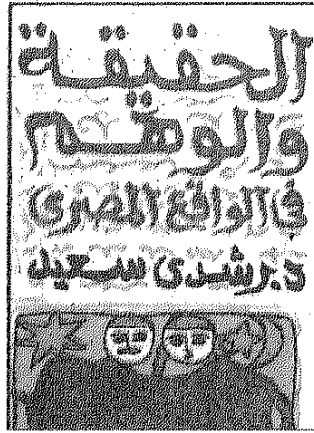 الحقيقة
والوهم
في الواقع المصري
د. رشدى سعيد